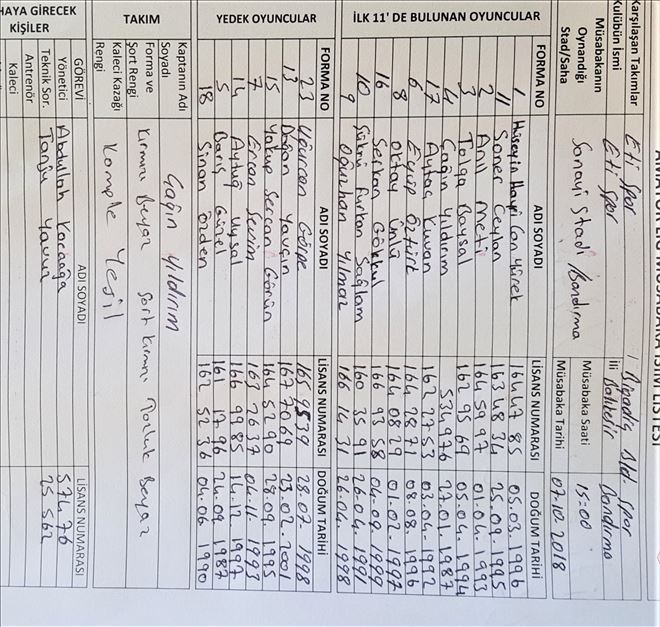 AMATÖR LİG MÜSABAKA İSİM LİSTESİ
Karşılaşan Takımlar Eti Spor / Bigadiç Bld. Spor
Kulübün İsmi Eti Spor İli Balıkesir Bandırma
Müsabakanın Oynandığı Stad/Saha Sanayi Stadı / Bandırma Müsabaka Saati 15:00
Müsabaka Tarihi 07.10.2018
FORMA NO ADI SOYADI LİSANS NUMARASI DOĞUM TARİHİ
İLK 11' DE BULUNAN OYUNCULAR
1 Hüseyin Hayri Can Yürek 16447 85 05.03.1996
11 Soner Ceylan 163 48 34 25.09.1995
2 Anıl Metin 164 59 97 01.04.1993
3 Tolga Baysal 162 95 69 05.04.1994
4 Çağın Yıldırım 534976 27.01.1987
17 Aytaç Kuvan 162 27 53 03.04.1992
6 Eyüp Öztürk 164 28 71 08.08.1996
8 Oktay Ünlü 164 08 29 01.02.1997
16 Serkan Gökkul 166 93 58 04.09.1999
10 Şükrü Furkan Sağlam 160 35 91 26.04.1991
9 Oğuzhan Yılmaz 166 14 31 26.04.1998
FORMA NO ADI SOYADI LİSANS NUMARASI DOĞUM TARİHİ
YEDEK OYUNCULAR
23 Uğurcan 165 9539 28.07.1998
13 Doğan Yavçın 167 7069 23.02.2001
15 Yakup Sercan Görün 164 52 90 28.09.1995
7 Ercan Sevim 163 2637 04.11.1993
14 Aytuğ Uysal 166 99 85 14.12.1997
5 Barış Güzel 161 17 96 24.09.1987
18 Sinan Özden 162 52 36 04.06.1990
TAKIM
Kaptanın Adı Soyadı Çağın Yıldırım
Forma ve Şort Rengi Kırmızı Beyaz Şort Kırmızı Tozluk Beyaz
Kaleci Kazağı Rengi Komple Yeşil
SAHAYA GİRECEK KİŞİLER
GÖREVİ ADI SOYADI LİSANS NUMARASI
Yönetici Abdullah Karaağa 574 76
Teknik Sor. Tanju Yavuz 25 562
Antrenör
Kaleci